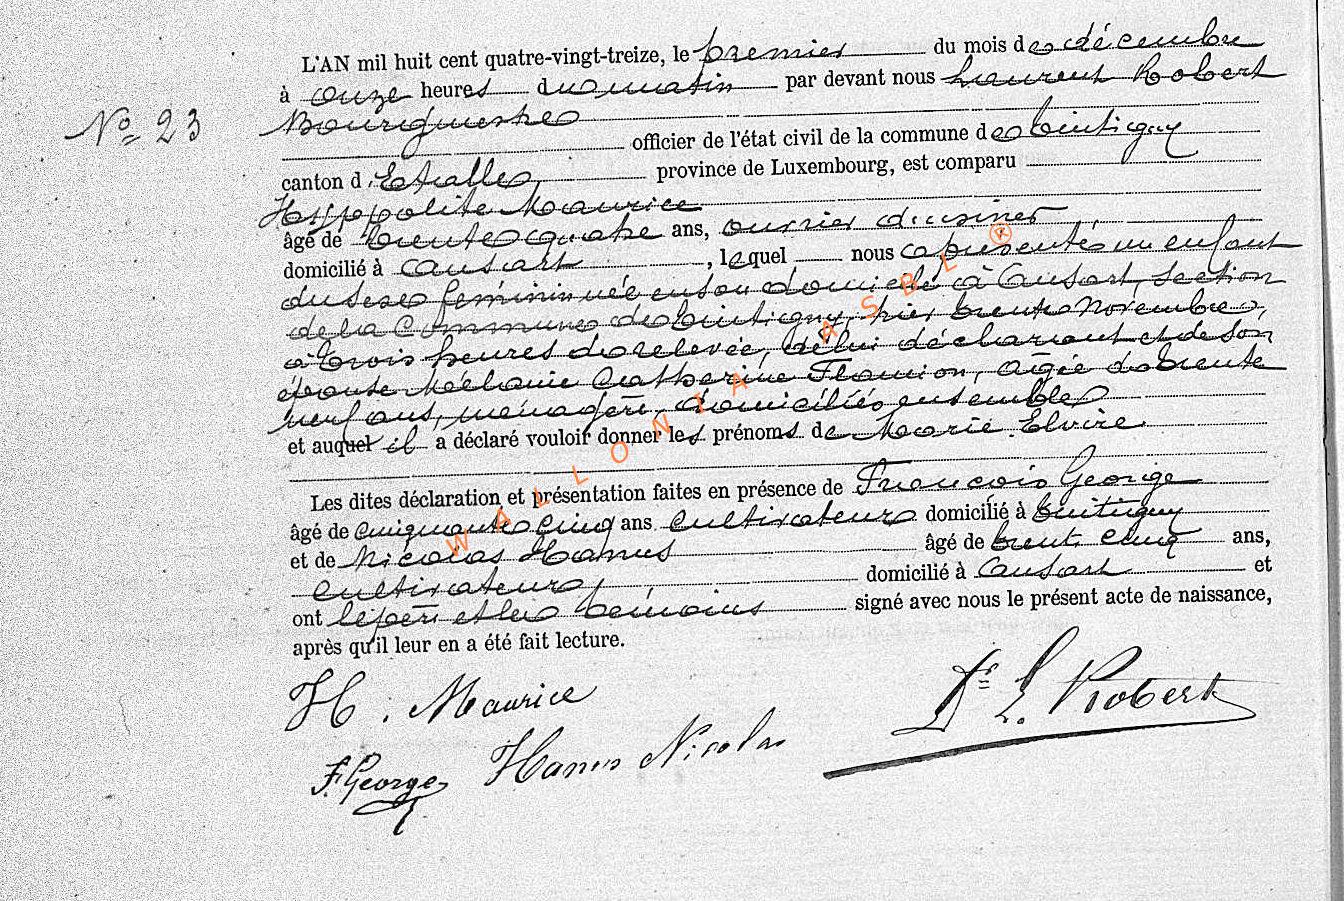 L'AN mil huit cent quatre-vingt-treize, le premier du mois de décembre
à onze heures du matin par devant nous Laurent Robert
No 23
Bourgmestre
officier de l'état civil de la commune de Tintigny
canton d'Etalle, province de Luxembourg, est comparu
Hyppolite Maurice
âgé de trente quatre ans, ouvrier d'usines
domicilié à Ansart, lequel nous a présenté un enfant
du sexe féminin née en son domicile à Ansart, section
de la Commune de Tintigny, hier trente Novembre,
à trois heures de relevée, de lui déclarant et de son
épouse Mélanie Catherine Flamion, âgée de trente
neuf ans, ménagère, domiciliés ensemble
et auquel il a déclaré vouloir donner les prénoms de Marie Elvire
Les dites déclaration et présentation faites en présence de François George
âgé de cinquante cinq ans cultivateur domicilié à Tintigny
et de Nicolas Hanus âgé de trente cinq ans,
cultivateur, domicilié à Ansart et
ont le père et les témoins signé avec nous le présent acte de naissance,
après qu'il leur en a été fait lecture.
H. Maurice
Dr L. Robert
F. George Hanus Nicolas
WALLONIA ASBL ®